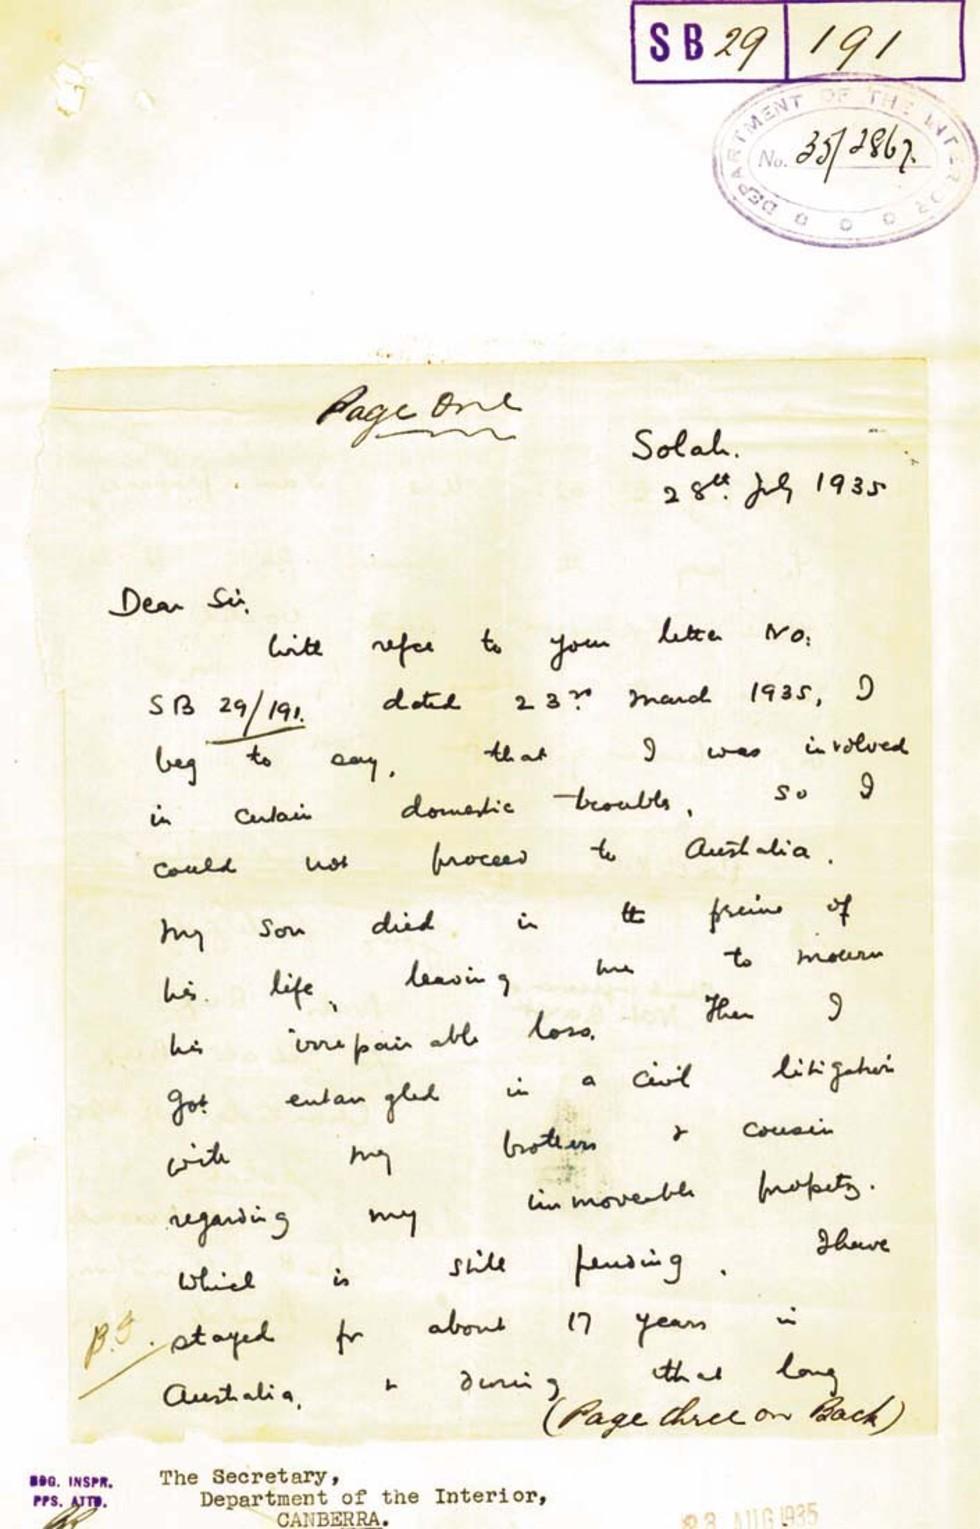 SB 29 191
DEPARTMENT OF THE INTERIOR
No. 35/2867.
Page One
Solah.
28th. July 1935
Dear Sir,
With refce to your letter No:
SB 29/191. dated 23rd March 1935, I
beg to say, that I was involved
in certain domestic troubles, so I
could not proceed to Australia.
My Son died in the prime of
his life, leaving me to mourn
his irrepairable loss. Then I
got entangled in a civil litigation
with my brothers & cousin
regarding my immoveable property.
Which is still pending. I have
B.S. stayed for about 17 years in
Australia, & during that long
(Page three on Back)
The Secretary,
INSPR.
Department of the Interior,
PPS. ATTD.
CANBERRA.
23 AUG 1935